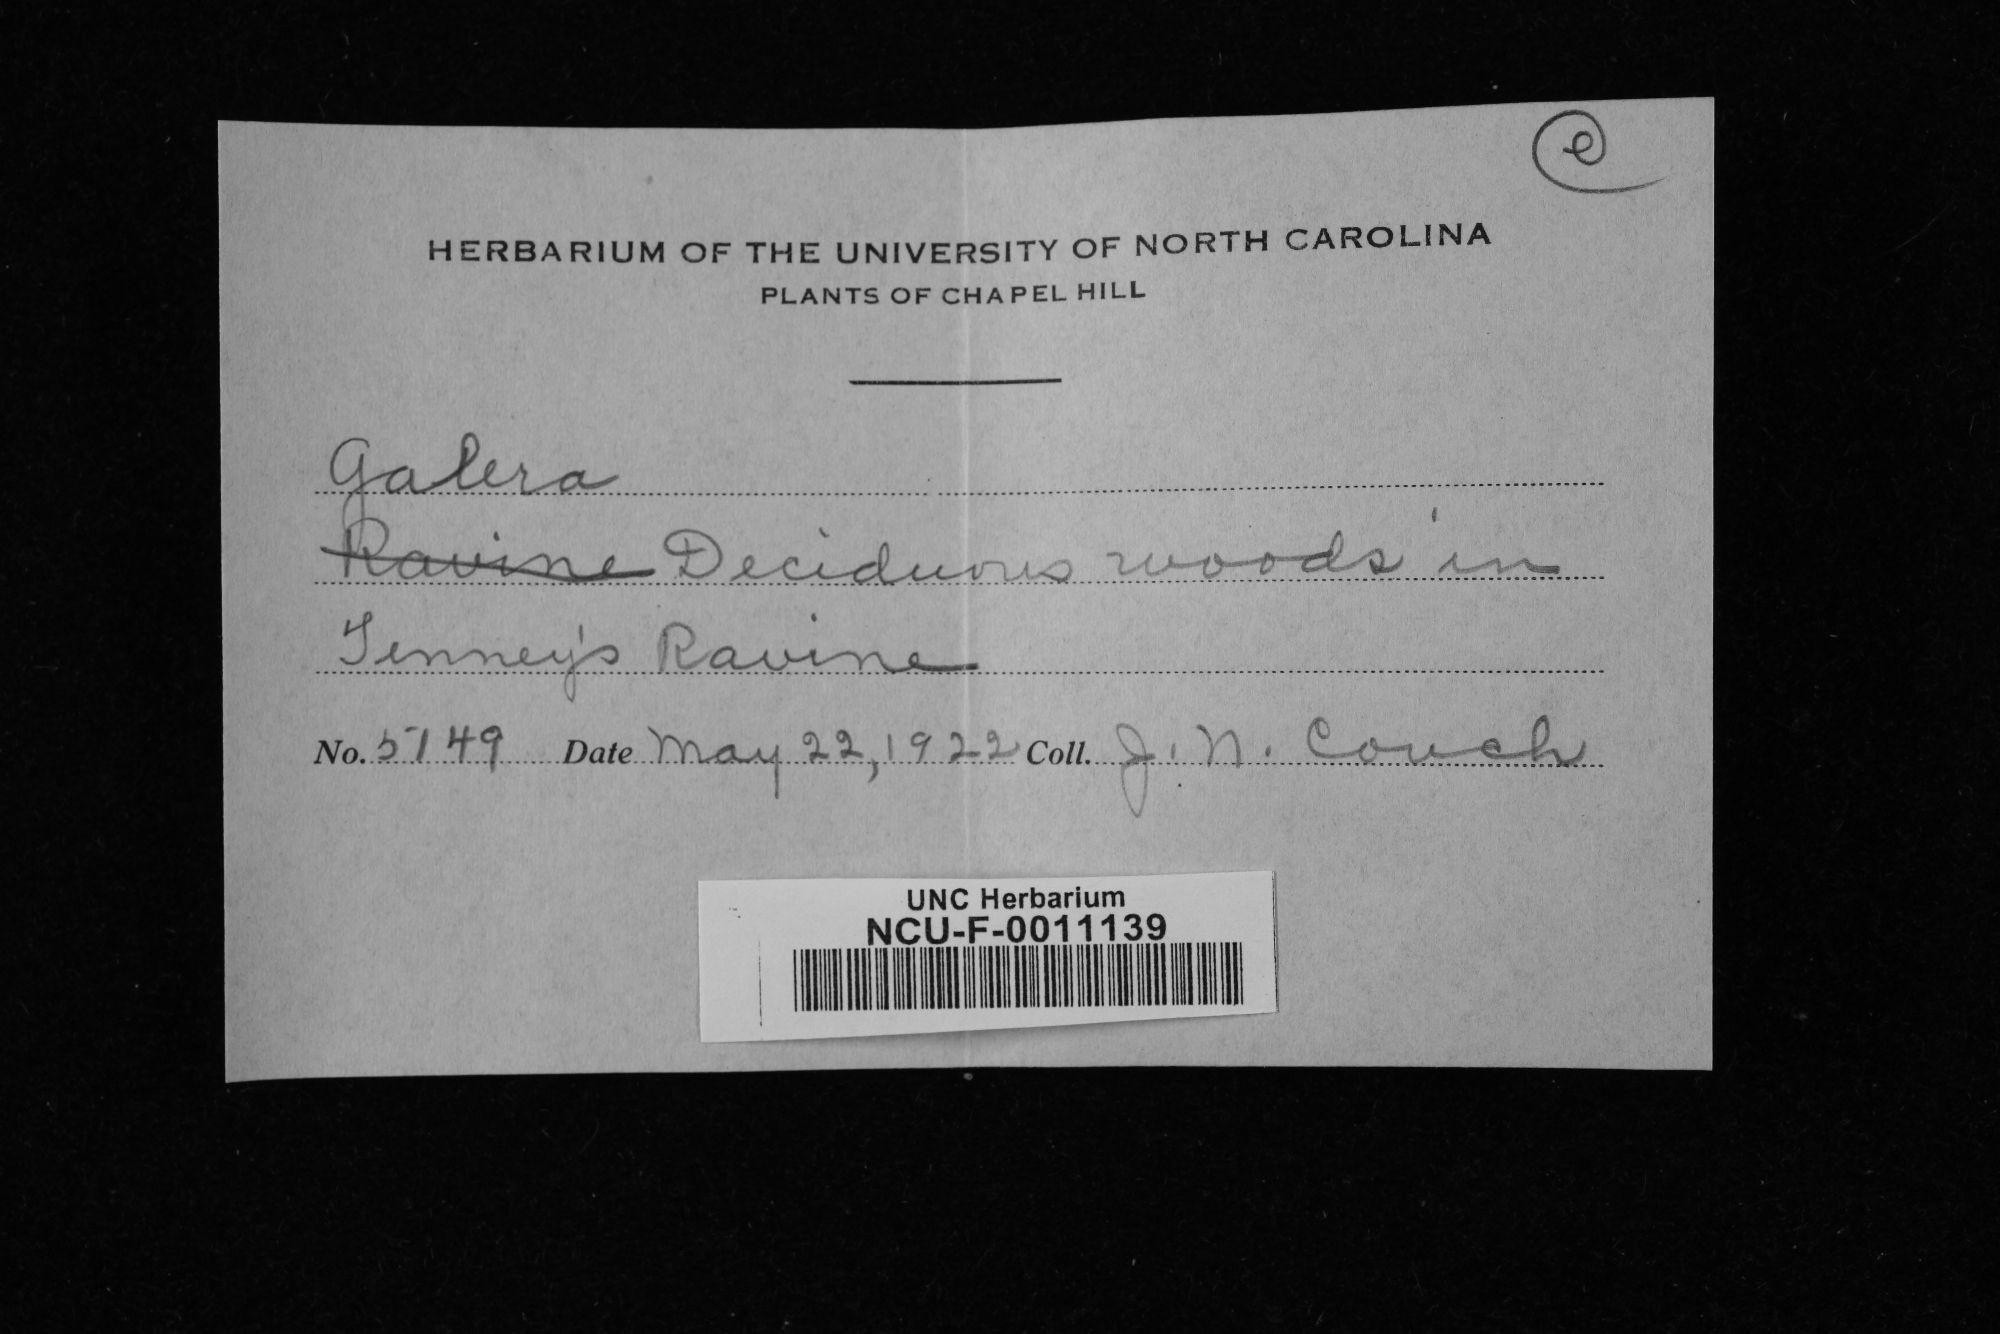 e
HERBARIUM OF THE UNIVERSITY OF NORTH CAROLINA
PLANTS OF CHAPEL HILL
Galera
Ravine Deciduous woods in
Tenney's Ravine
No. 5749 Date May 22, 1922 Coll. J. N. Couch
UNC Herbarium
NCU-F-0011139